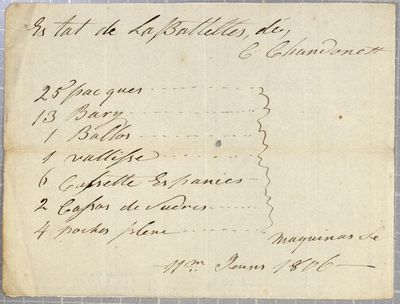 Es tat de La Battelles, de,
C Chandonett
25 pacques
13 Bary
1 Ballos
1 vallisse
6 Cassette Espanies
2 Cassos de Sucres
4 poches plene
Maquinas Le
11m Jenns 1806